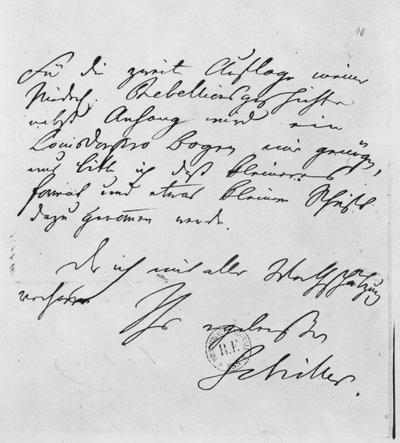 90
Für die zweite Auflage meiner
Niederl. Rebellionsgeschichte
nebst Anhang wird ein
Louisdor pro Bogen mir genügen,
nur bitte ich daß kleineres
Format und etwas kleinere Schrift
dazu genommen werde.
Der ich mit aller Werthschätzung
verharre
Ihr ergebenster
R.F.
Schiller.